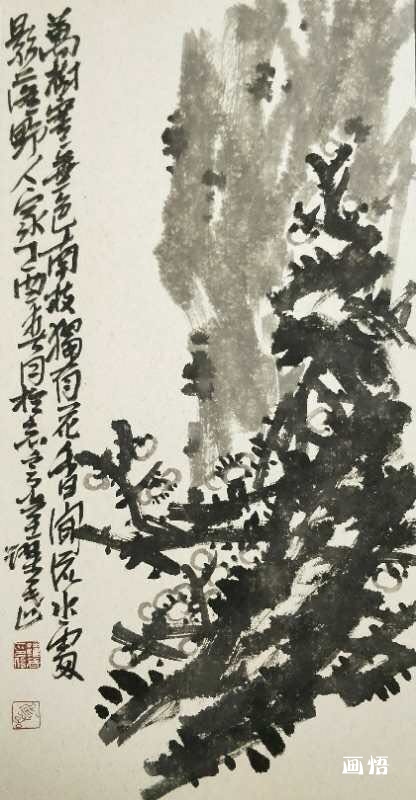 萬樹寒無色南枝獨有花香聞流水處
影落野人家丁酉春
画悟